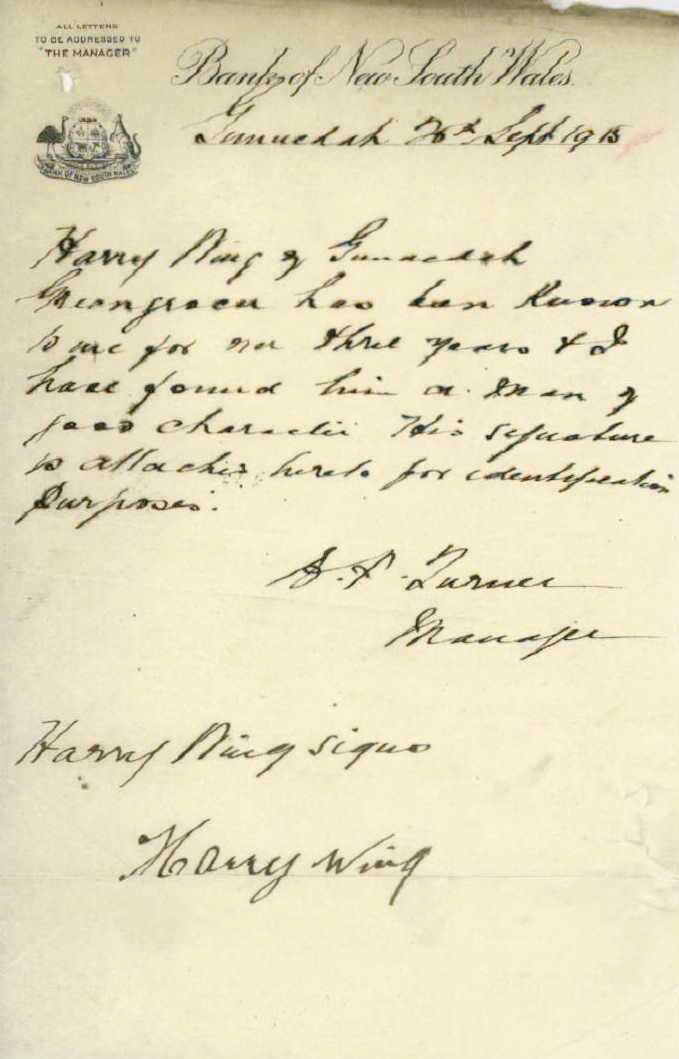 ALL LETTERS
TO BE ADDRESSED TO
"THE MANAGER"
Bank of New South Wales.
BANK OF NEW SOUTH WALES
Gunnedah Sept 1915
Harry Wing of Gunnedah
Greengrocer has been known
to me for over three years & I
have found him a man of
good character His signature
is attached hereto for identification
purposes.
Turner
Manager
Harry Wing signs
Harry Wing